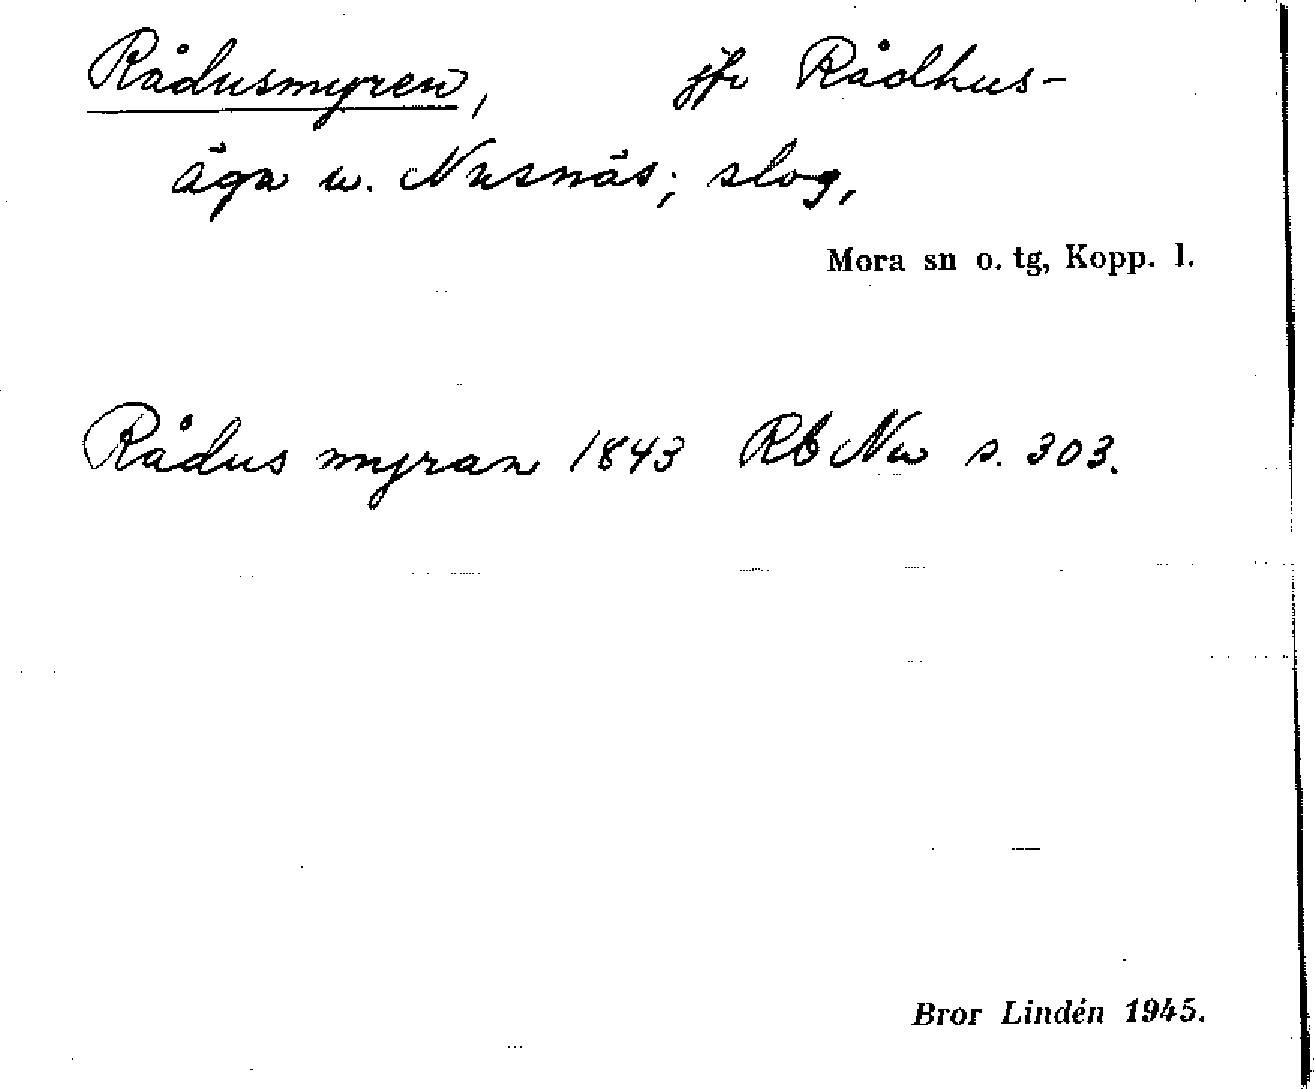 Rådusmyren, jfr Rådhus-
äga u. Nusnäs; slog,
Mora sn o. tg, Kopp. l.
Rådus myran 1843 Rb Nu s. 303.
Bror Lindén 1945.